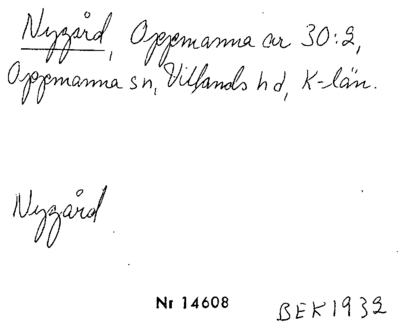 Nygård, Oppmanna ar 30:2,
Oppmanna sn, Villands hd, K-län.
Nygård
Nr 14608
BEK1932